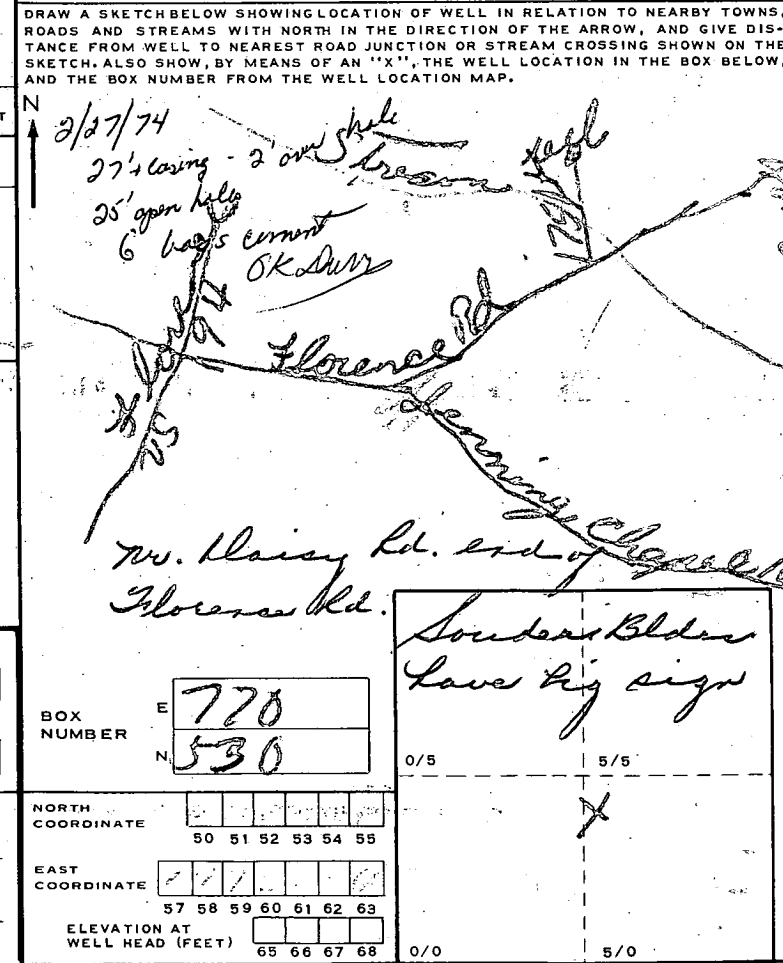 DRAW A SKETCH BELOW SHOWING LOCATION OF WELL IN RELATION TO NEARBY TOWNS,
ROADS AND STREAMS WITH NORTH IN THE DIRECTION OF THE ARROW, AND GIVE DIS-
TANCE FROM WELL TO NEAREST ROAD JUNCTION OR STREAM CROSSING SHOWN ON THE
SKETCH. ALSO SHOW, BY MEANS OF AN "X", THE WELL LOCATION IN THE BOX BELOW,
AND THE BOX NUMBER FROM THE WELL LOCATION MAP.
N
2/27/74
27'+ casing - 2' over hole
25' open hole
6 bags cement
OK
Stream
94
Florence Rd
Jennings Chapel
nr. Daisy Rd. end of
Florence Rd.
Souders Bldrs
have big sign
BOX
NUMBER
E 770
N 530
0/5 5/5
X
0/0 5/0
NORTH
COORDINATE
50 51 52 53 54 55
EAST
COORDINATE
57 58 59 60 61 62 63
ELEVATION AT
WELL HEAD (FEET)
65 66 67 68